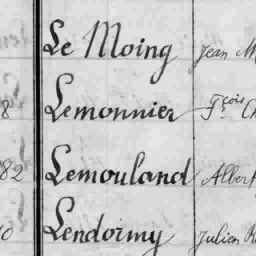 Le Moing Jean M
8 Lemonnier Fçois Ch
82 Lemouland Albert
0 Lendormy Julien R